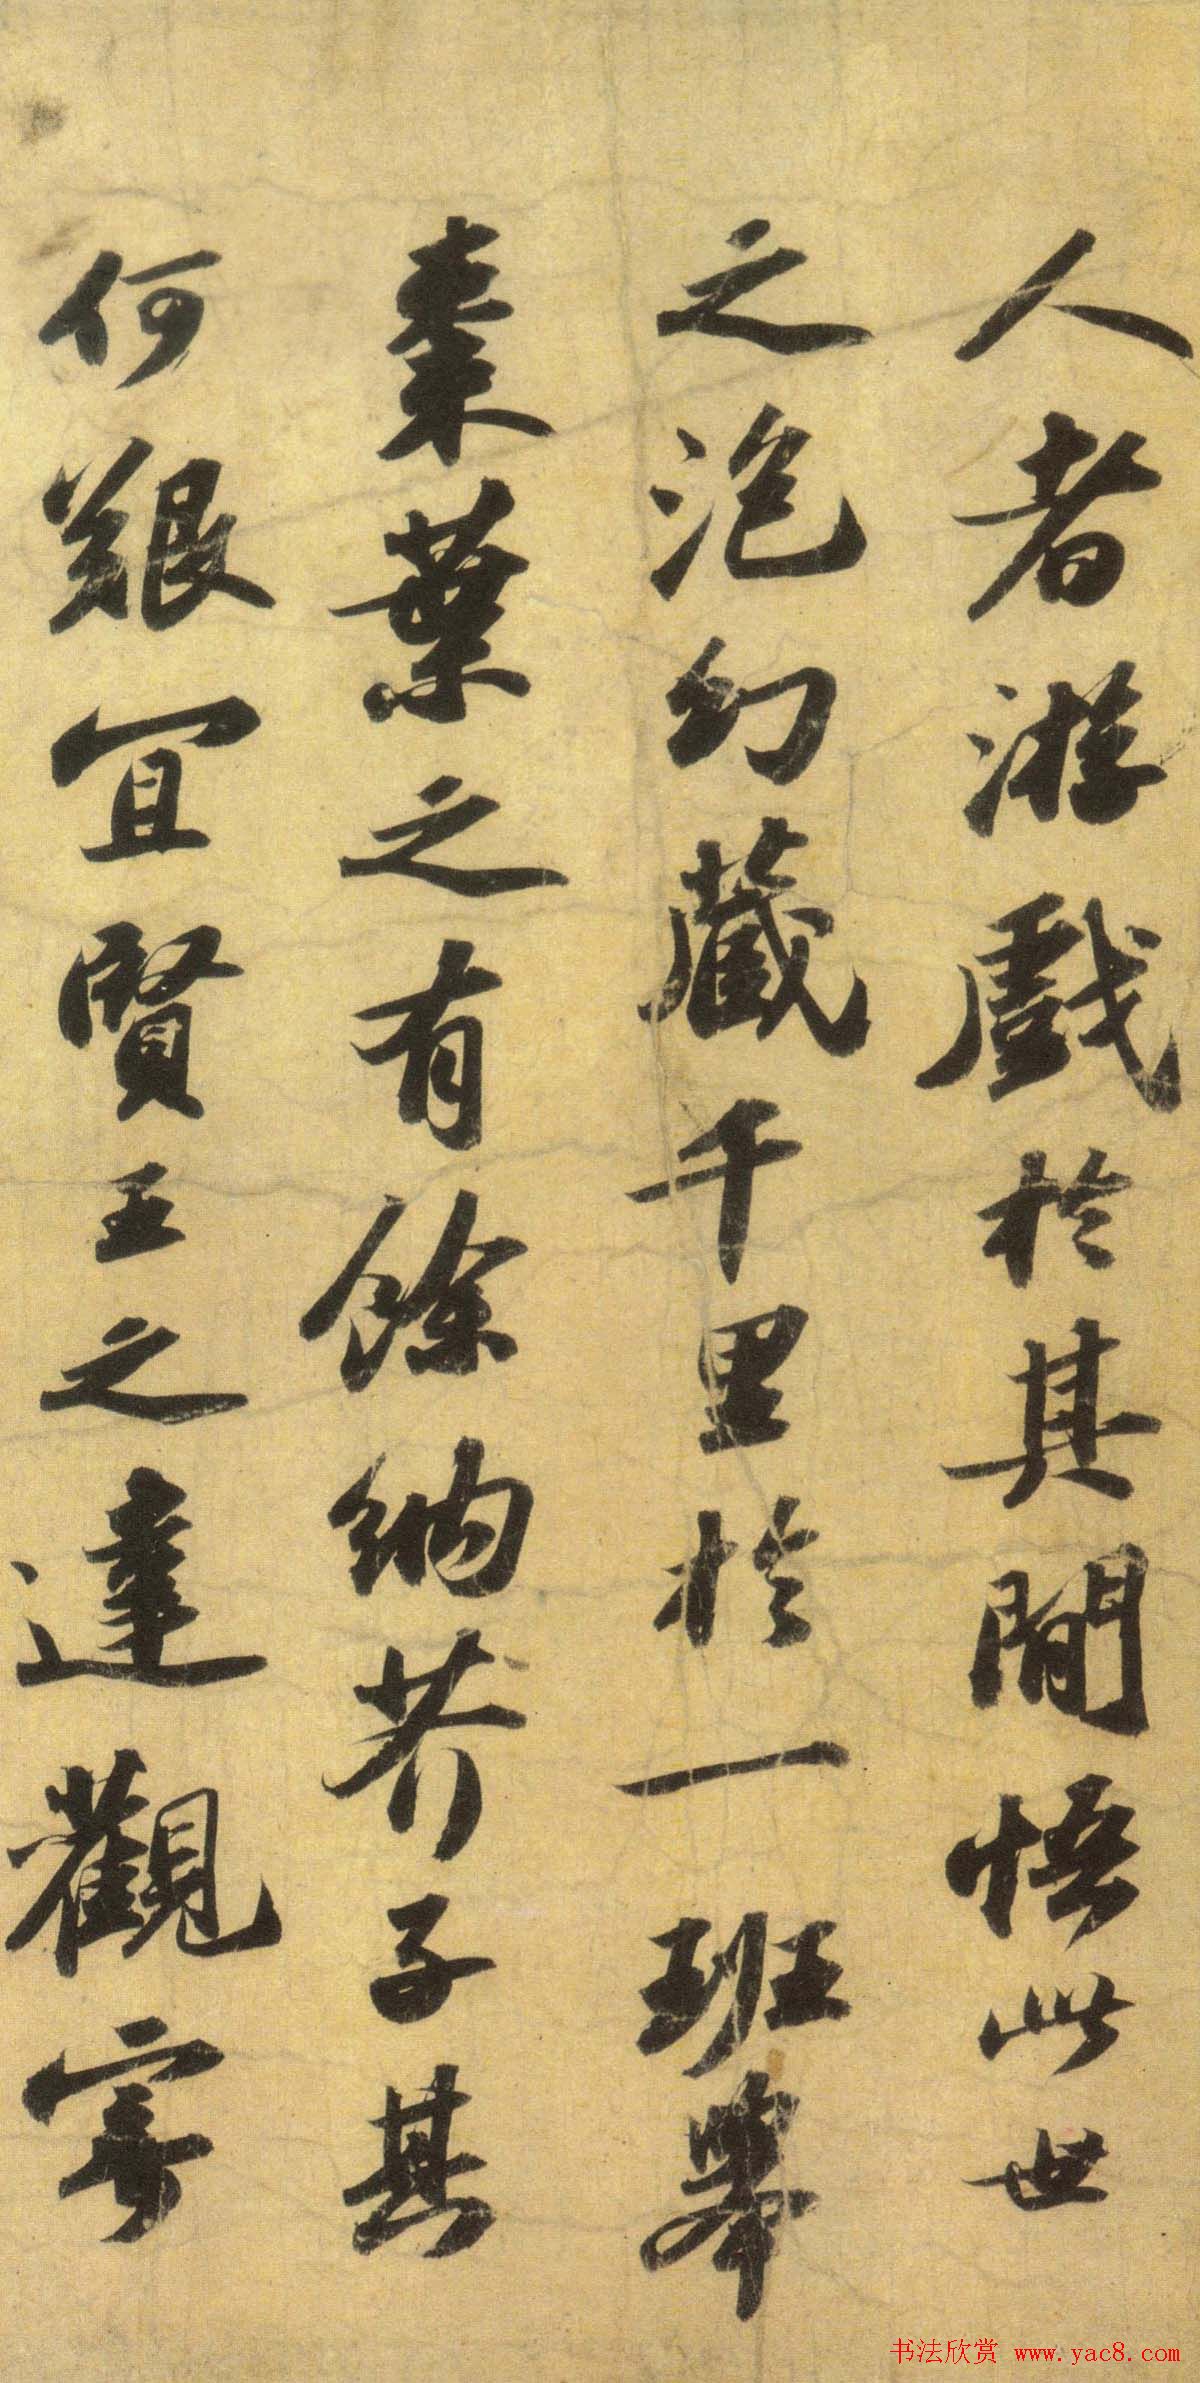 人者游戲於其間悟此世
之泡幻藏千里於一班舉
棗葉之有餘納芥子其
何艱宜賢王之達觀寄
书法欣赏 www.yac8.com